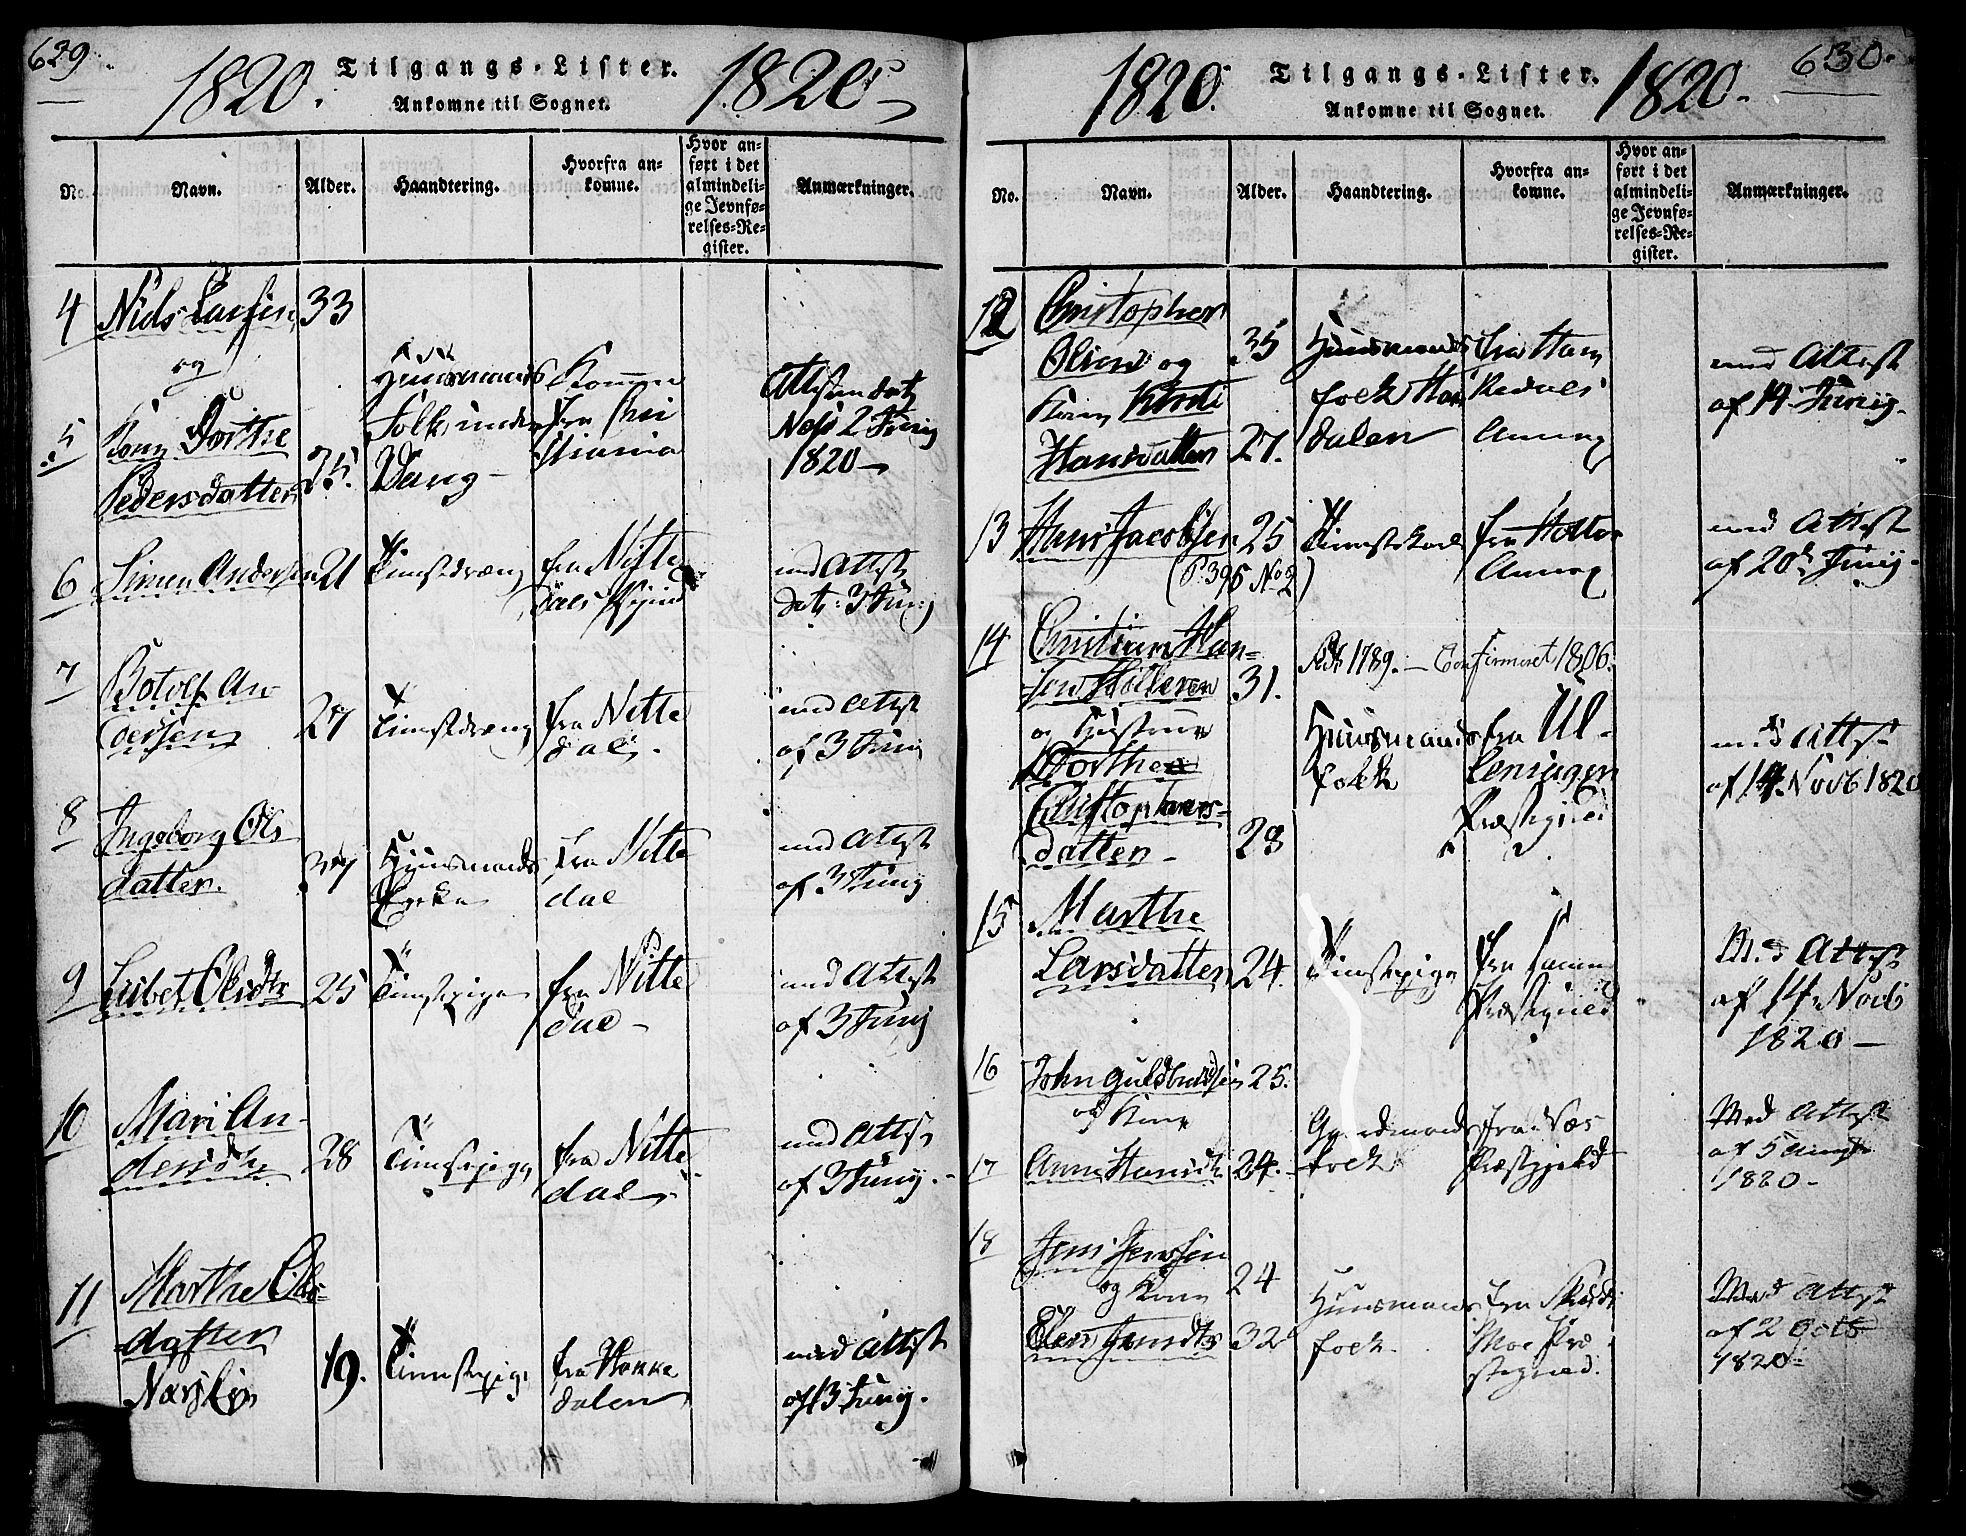 629.
1820. Tilgangs-Lister. 1820
Ankomne til Sognet.
No. Navn. Alder. Haandtering. Hvorfra an-
komne. Hvor an-
ført i det
almindeli-
ge Jevnfø-
relses-Re-
gister. Anmærkninger.
4 Niels Larsen 33
og
5 Kone Dorthe
Pedersdatter 35.
Huusmands
Folk under
Vang-
Komne
fra Chri
stiania
Attesten dat
Næss 2 Junij
1820
6 Simen Andersen 21 Tienstedreng fra Nitte
dals
med Attest
dat: 3 Junij
7 Botolf An
dersen 27 Tienstedreng fra Nitte
dal.
med Attest
af 3 Junij
8 Ingeborg Ols
datter. 37 Huusmands
fra Nitte
dal
med Attest
af 3 Junij
9 Lisbet Olsdtr 25 Tienstepige fra Nitte
dal
med Attest
af 3 Junij
10 Mari An-
dersdtr 28 Tienstepige fra Nitte
dal
med Attest
af 3 Junij.
11 Marthe Ols-
datter
19. Tienstepige fra Hakke
dalen
med Attest
af 3 Junij.
630.
1820. Tilgangs-Lister. 1820.
Ankomne til Sognet.
No. Navn. Alder. Haandtering. Hvorfra an-
komne. Hvor an-
ført i det
almindeli-
ge Jevnfø-
relses-Re-
gister. Anmærkninger.
12 Christopher
Olsen og 35
Kone Kirsti
Hansdatter 27.
Huusmands
folk Hak
dalen
fra Hak
kedals
Annex
med Attest
af 14 Junij.
13 Hans Jacobsen 25 Tienstekarl fra
Annex
(P. 396 No 2)
med Attest
af 20de Junij.
14 Christian Han-
sen 31.
og Hustrue
Dorthea
Christophers-
datter 29
Født 1789. - Confirmeret 1806.
Huusmands
folk
fra Ul-
lensagers
Præstegield
med Attest
af 14. Novb 1820
15 Marthe
Larsdatter 24. Tienstepige fra samme
Præstegield
Med Attest
af 14 Novb
1820
16 John Guldbrandsen 25.
og Kone
17 Anne Hansdtr 24.
Gaardmands
folk
fra Næs
Præstegjeld
Med Attest
af 5
1820-
18 Jens Jensen 24
og Kone
Elen Jensdtr 32
Huusmands
folk.
fra Skeds
moe Præ
stegield.
Med Attest
af 2 Octb
1820-